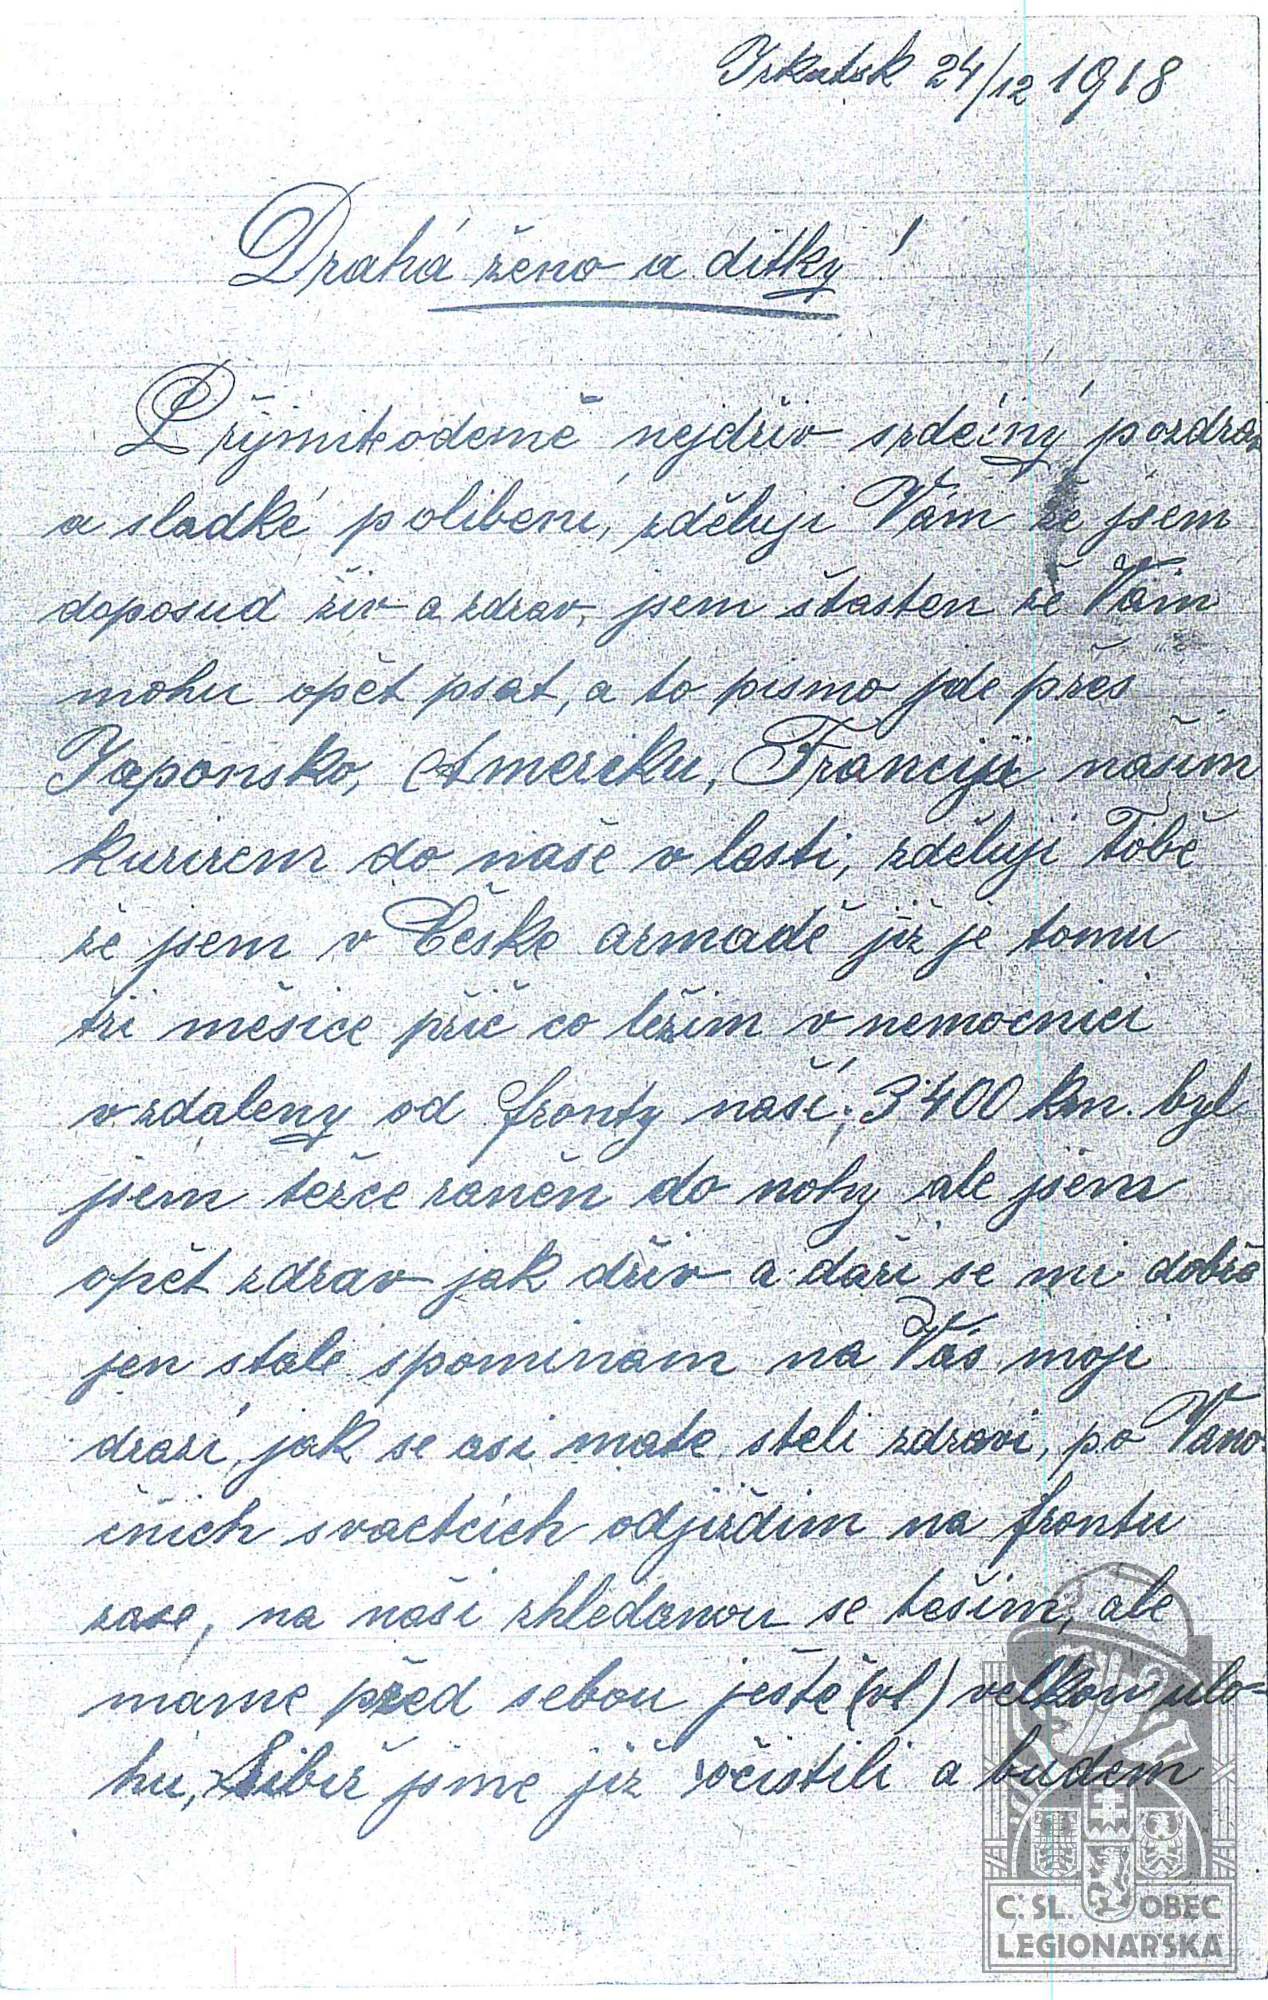 Irkutsk 24/12 1918
Drahá ženo a ditky!
Přijmiteodemě nejdřiv srdéćný pozdrav
a sladké polibení, zděluji Vám že jsem
doposud živ a zdrav, jsem štasten že Vám
mohu opět psat, a to pismo jde přes
Japonsko, Ameriku, Franciji našim
kurirem do naše vlasti, zděluji Tobě
že jsem v České armadě již je tomu
tri měsice přič co ležim v nemocnici
vzdaleny od fronty naší; 3400 km. byl
jsem težce raněn do nohy ale jsem
opět zdrav jak dřiv a daři se mi dobře
jen stale spominam na Vás moji
drazí, jak se asi mate, steli zdravi, po Vano-
čnich svactcich odjiždim na frontu
zase, na naši zhledanou se tešim, ale
mame před sebou ještě (vl) velkou ulo-
hu, Sibiř jsme již očistili a budem
Č. SL. OBEC
LEGIONÁŘSKÁ